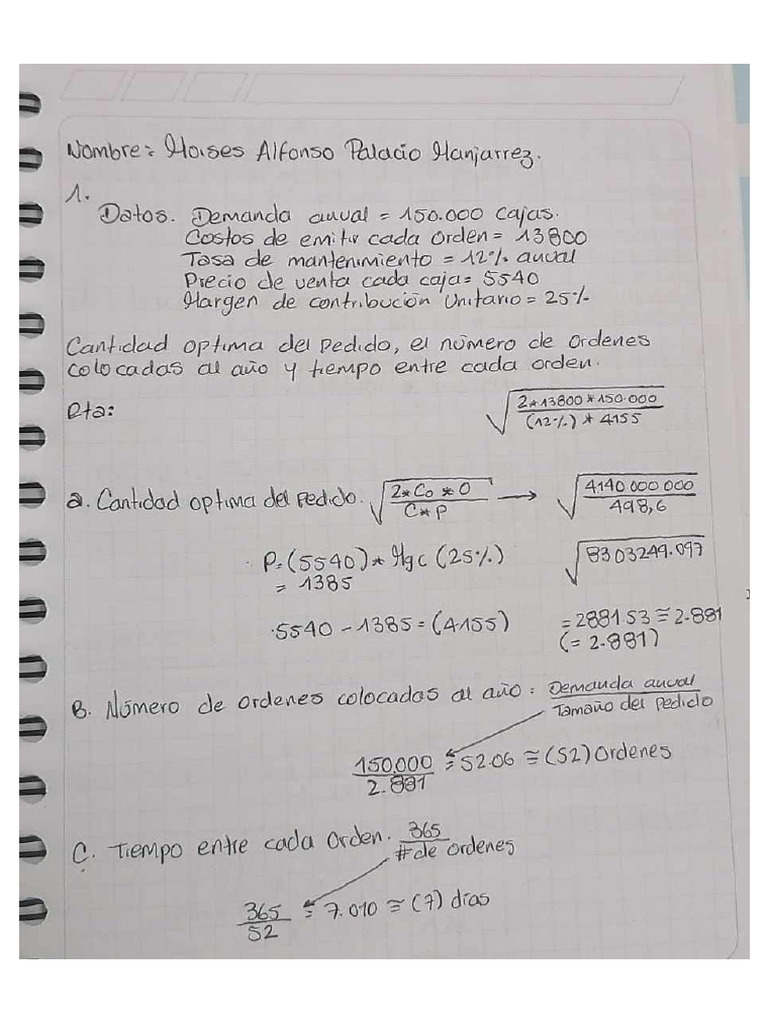 Nombre: Moises Alfonso Palacio Manjarrez.
1.
Datos. Demanda anual = 150.000 cajas.
Costos de emitir cada orden = 13800
Tasa de mantenimiento = 12% anual
Precio de venta cada caja = 5540
Margen de contribución Unitario = 25%
Cantidad optima del pedido, el número de ordenes
colocadas al año y tiempo entre cada orden.
Rta: √ 2*13800*150.000 / (12%) * 4155
a. Cantidad optima del pedido. √ 2*Co*D / C*P → √ 4140.000 000 / 498,6
P = (5540) * Mgc (25%) √ 8303249.097
= 1385
.5540 - 1385 = (4155) = 2881.53 ≅ 2.881
(= 2.881)
B. Número de ordenes colocadas al año: Demanda anual / Tamaño del pedido
150.000 / 2.881 = 52.06 ≅ (52) Ordenes
C. Tiempo entre cada orden. 365 / # de ordenes
365 / 52 = 7.010 ≅ (7) días